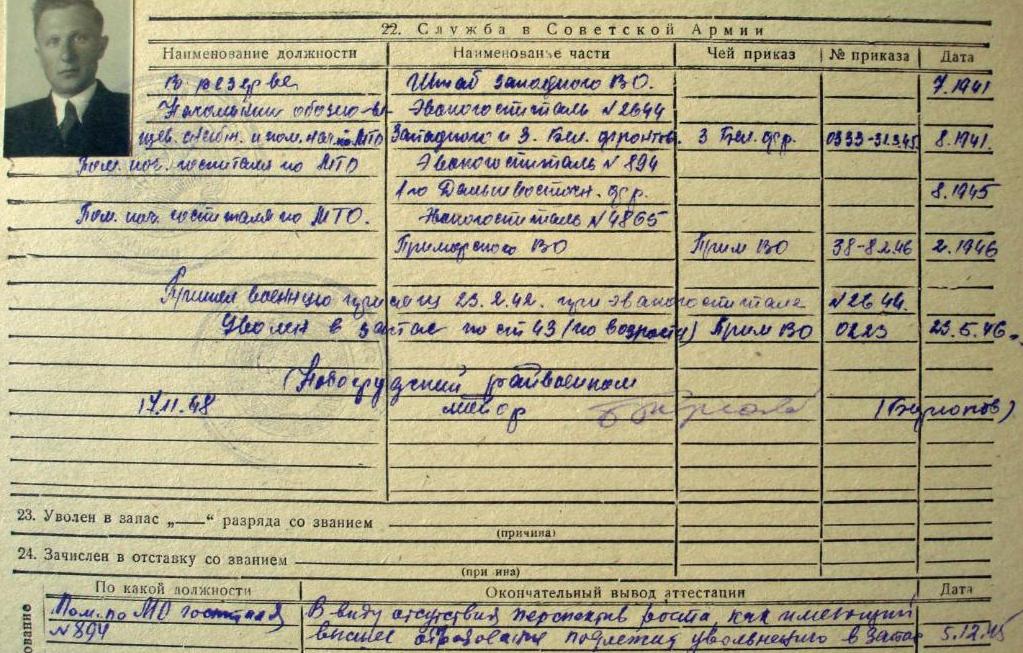 22. Служба в Советской Армии
Наименование должности Наименование части Чей приказ № приказа Дата
В резерве Штаб Западного ВО. 7.1941
Начальник обозно-ве Эвакогоспиталь №2644
щев. снабж. и пом. нач. по МТО Западного и 3. Бел. фронтов. 3 Бел. фр. 0333-31.3.45. 8.1941.
Пом. нач. госпиталя по МТО Эвакогоспиталь №894
1го Дальневосточн. фр. 8.1945
Пом. нач. госпиталя по МТО. Эвакогоспиталь №4865
Приморского ВО Прим ВО 38-8.2.46 2.1946
Принял военную присягу 23.2.42. при эвакогоспитале №2644.
Уволен в запас по ст 43 (по возрасту) Прим ВО 0223 23.5.46
райвоенком
17.11.48 майор
23. Уволен в запас „ “ разряда со званием
(причина)
24. Зачислен в отставку со званием
(при ина)
По какой должности Окончательный вывод аттестации Дата
Пом. по МО госпиталя В виду отсутствия перспектив роста, как имеющий
№894 высшее образование подлежит увольнению в запас 5.12.45
ование